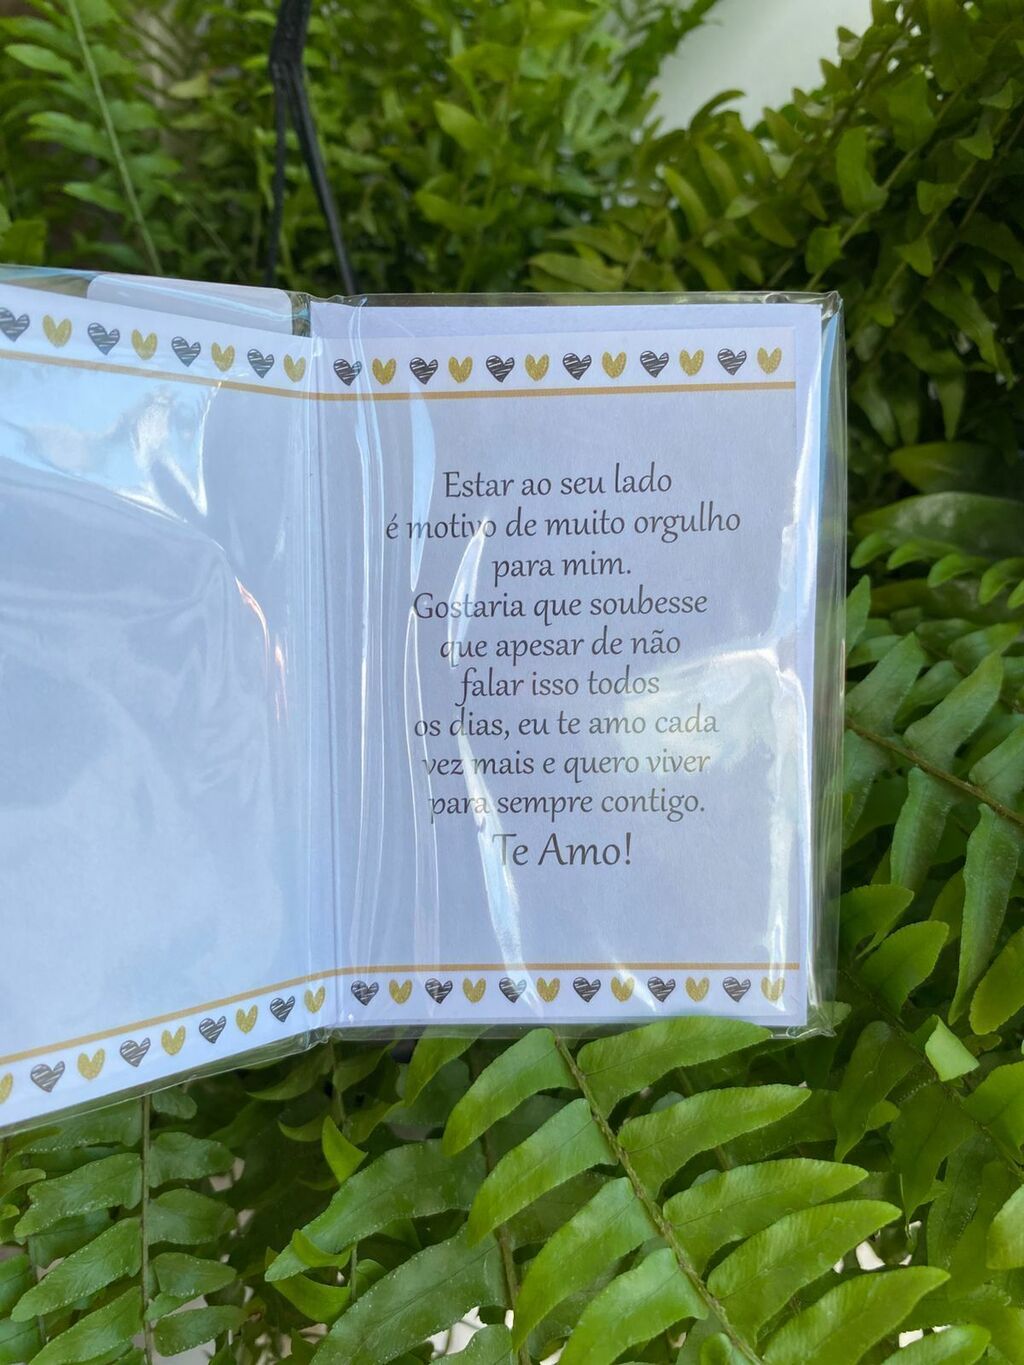 Estar ao seu lado
é motivo de muito orgulho
para mim.
Gostaria que soubesse
que apesar de não
falar isso todos
os dias, eu te amo cada
vez mais e quero viver
para sempre contigo.
Te Amo!